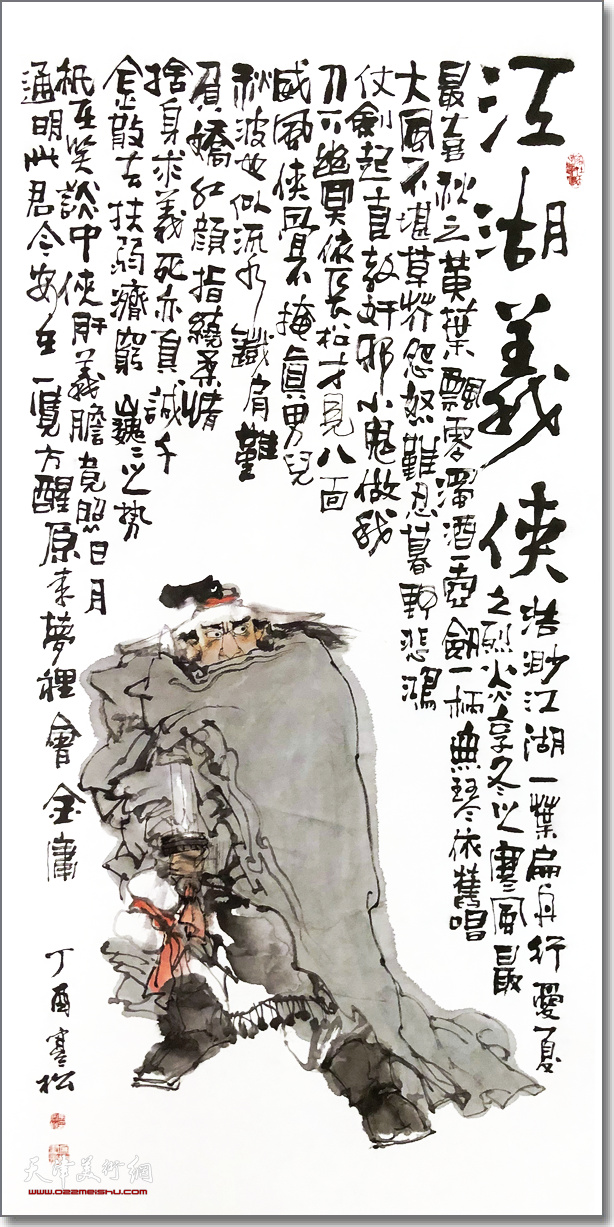 江湖義侠
浩渺江湖一葉扁舟行愛夏
之烈火享冬之寒風最
最喜秋之黄葉飄零濁酒一壺劍一柄無琴依舊唱
大風不堪草莽怨怒難忍暮野悲鴻
仗劍起直教奸邪小鬼做我
刀下幽冥依長松才見八面
威風俠骨不掩真男兒
秋波也似流水鐵肩難
眉嬌紅顔指繞柔情
捨身求義死亦真誠千
金散去扶弱濟窮巍〻之勢
祇在笑談中俠肝義膽竟照日月
通明此君今安在一覽方醒原来夢裡會金庸
丁酉寒松
天津美術網
www.022meishu.com